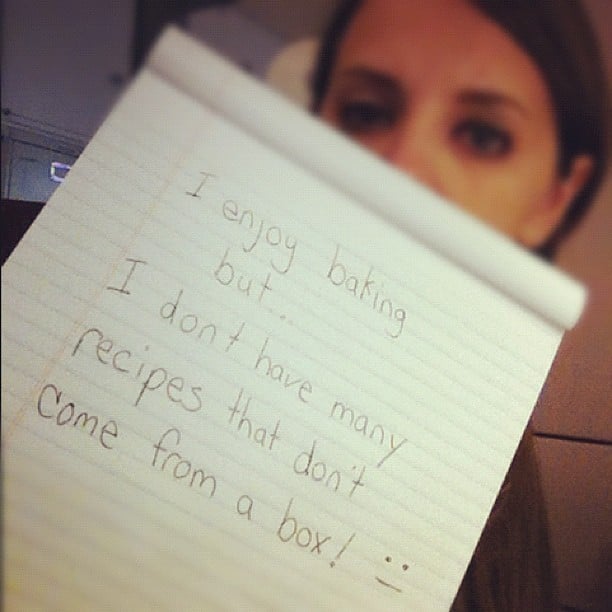 I enjoy baking
but..
I don't have many
recipes that don't
come from a box!